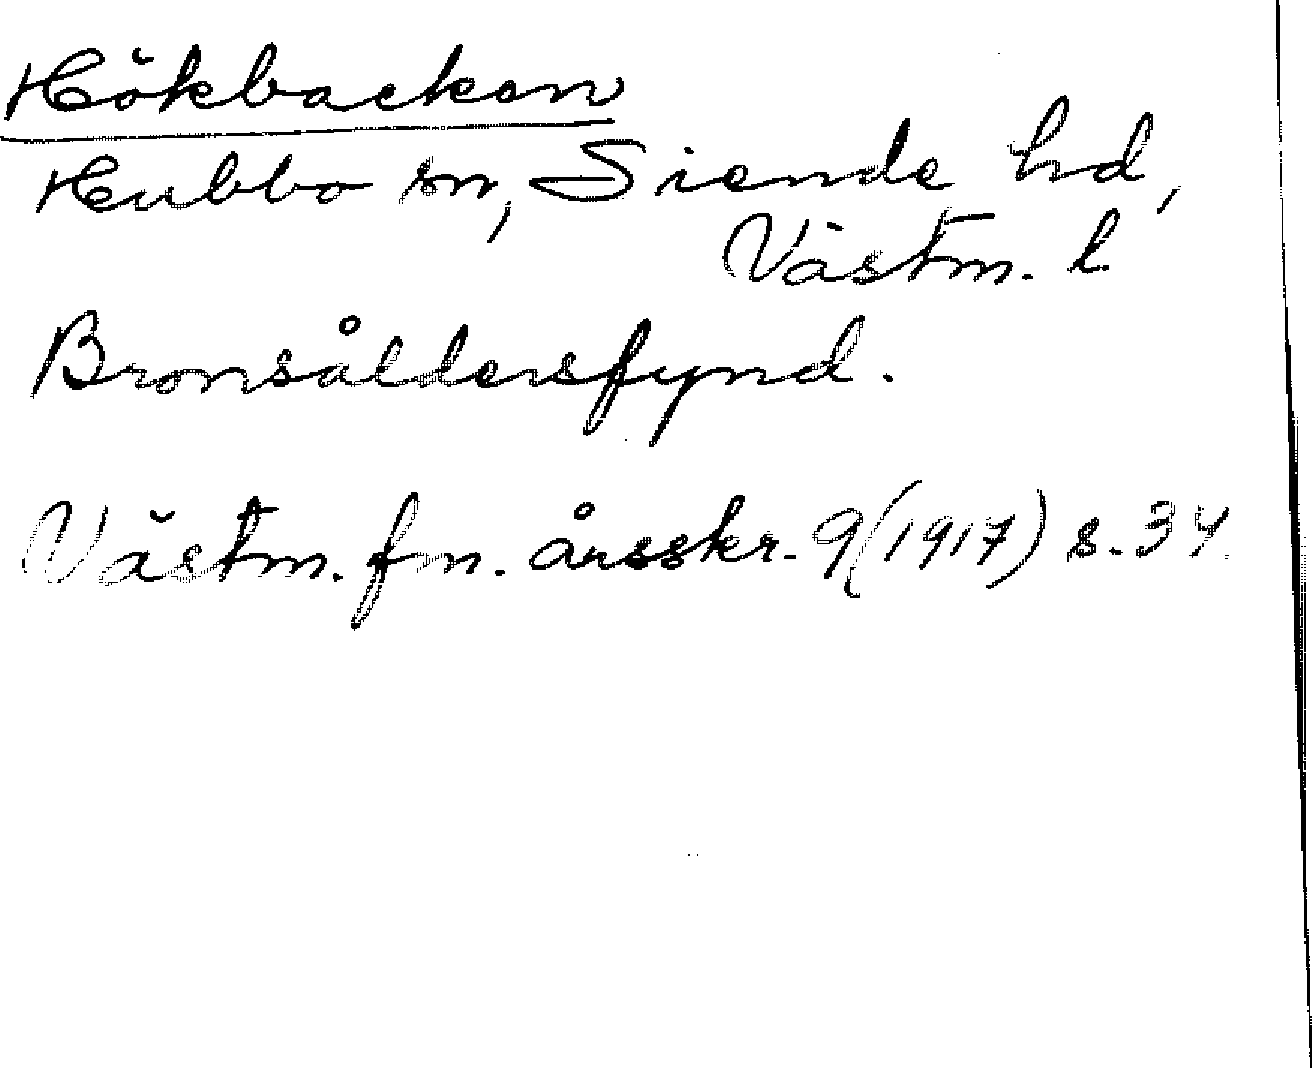 Hökbacken
Hubbo sn, Siende hd,
Västm. l.
Bronsåldersfynd.
Västm. fm. årsskr. 9 (1917) s. 34.